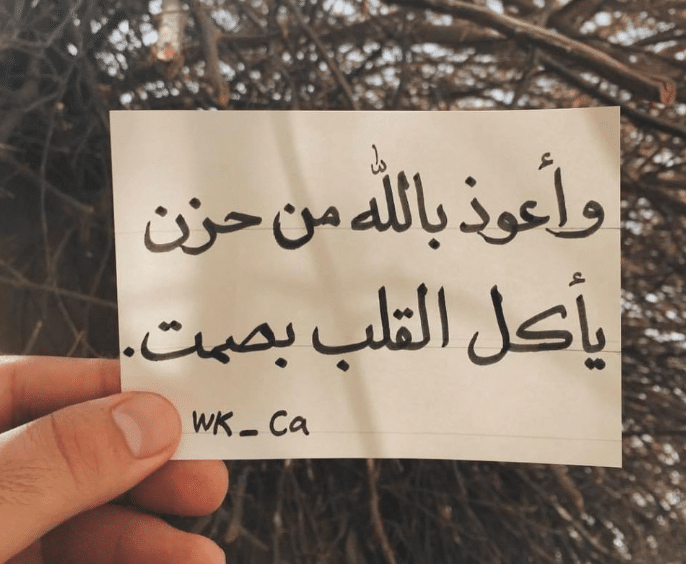 وأعوذ بالله من حزن
يأكل القلب بصمت.
WK_Ca